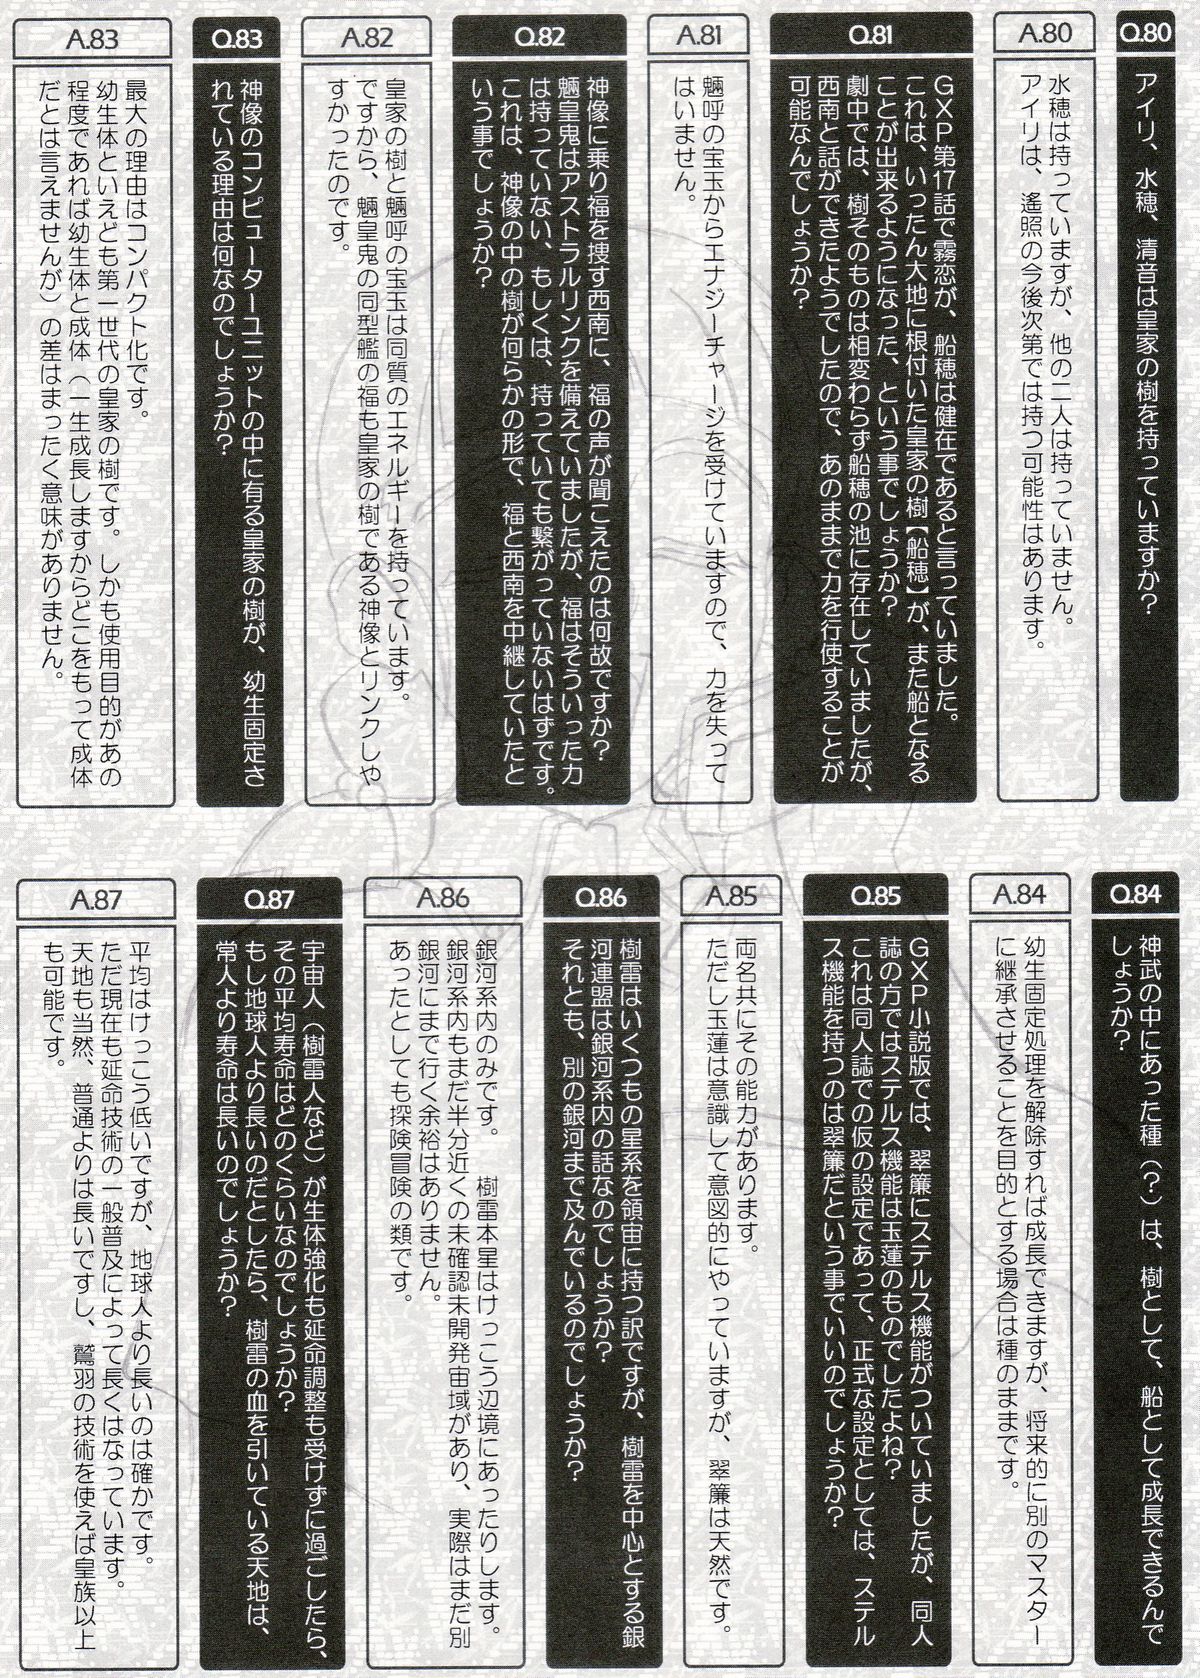 Q.80
アイリ、水穂、清音は皇家の樹を持っていますか？
A.80
水穂は持っていますが、他の二人は持っていません。
アイリは、遙照の今後次第では持つ可能性はあります。
Q.81
GXP第17話で霧恋が、船穂は健在であると言っていました。
これは、いったん大地に根付いた皇家の樹【船穂】が、また船となる
ことが出来るようになった、という事でしょうか？
劇中では、樹そのものは相変わらず船穂の池に存在していましたが、
西南と話ができたようでしたので、あのままで力を行使することが
可能なんでしょうか？
A.81
魎呼の宝玉からエナジーチャージを受けていますので、力を失って
はいません。
Q.82
神像に乗り福を捜す西南に、福の声が聞こえたのは何故ですか？
魎皇鬼はアストラルリンクを備えていましたが、福はそういった力
は持っていない、もしくは、持っていても繋がっていないはずです。
これは、神像の中の樹が何らかの形で、福と西南を中継していたと
いう事でしょうか？
A.82
皇家の樹と魎呼の宝玉は同質のエネルギーを持っています。
ですから、魎皇鬼の同型艦の福も皇家の樹である神像とリンクしや
すかったのです。
Q.83
神像のコンピューターユニットの中に有る皇家の樹が、幼生固定さ
れている理由は何なのでしょうか？
A.83
最大の理由はコンパクト化です。
幼生体といえども第一世代の皇家の樹です。しかも使用目的があの
程度であれば幼生体と成体（一生成長しますからどこをもって成体
だとは言えませんが）の差はまったく意味がありません。
Q.84
神武の中にあった種（？）は、樹として、船として成長できるんで
しょうか？
A.84
幼生固定処理を解除すれば成長できますが、将来的に別のマスター
に継承させることを目的とする場合は種のままです。
Q.85
GXP小説版では、翠簾にステルス機能がついていましたが、同人
誌の方ではステルス機能は玉蓮のものでしたよね？
これは同人誌での仮の設定であって、正式な設定としては、ステル
ス機能を持つのは翠簾だという事でいいのでしょうか？
A.85
両名共にその能力があります。
ただし玉蓮は意識して意図的にやっていますが、翠簾は天然です。
Q.86
樹雷はいくつもの星系を領宙に持つ訳ですが、樹雷を中心とする銀
河連盟は銀河系内の話なのでしょうか？
それとも、別の銀河まで及んでいるのでしょうか？
A.86
銀河系内のみです。樹雷本星はけっこう辺境にあったりします。
銀河系内もまだ半分近くの未確認未開発宙域があり、実際はまだ別
銀河にまで行く余裕はありません。
あったとしても探険冒険の類です。
Q.87
宇宙人（樹雷人など）が生体強化も延命調整も受けずに過ごしたら、
その平均寿命はどのくらいなのでしょうか？
もし地球人より長いのだとしたら、樹雷の血を引いている天地は、
常人より寿命は長いのでしょうか？
A.87
平均はけっこう低いですが、地球人より長いのは確かです。
ただ現在も延命技術の一般普及によって長くはなっています。
天地も当然、普通よりは長いですし、鷲羽の技術を使えば皇族以上
も可能です。